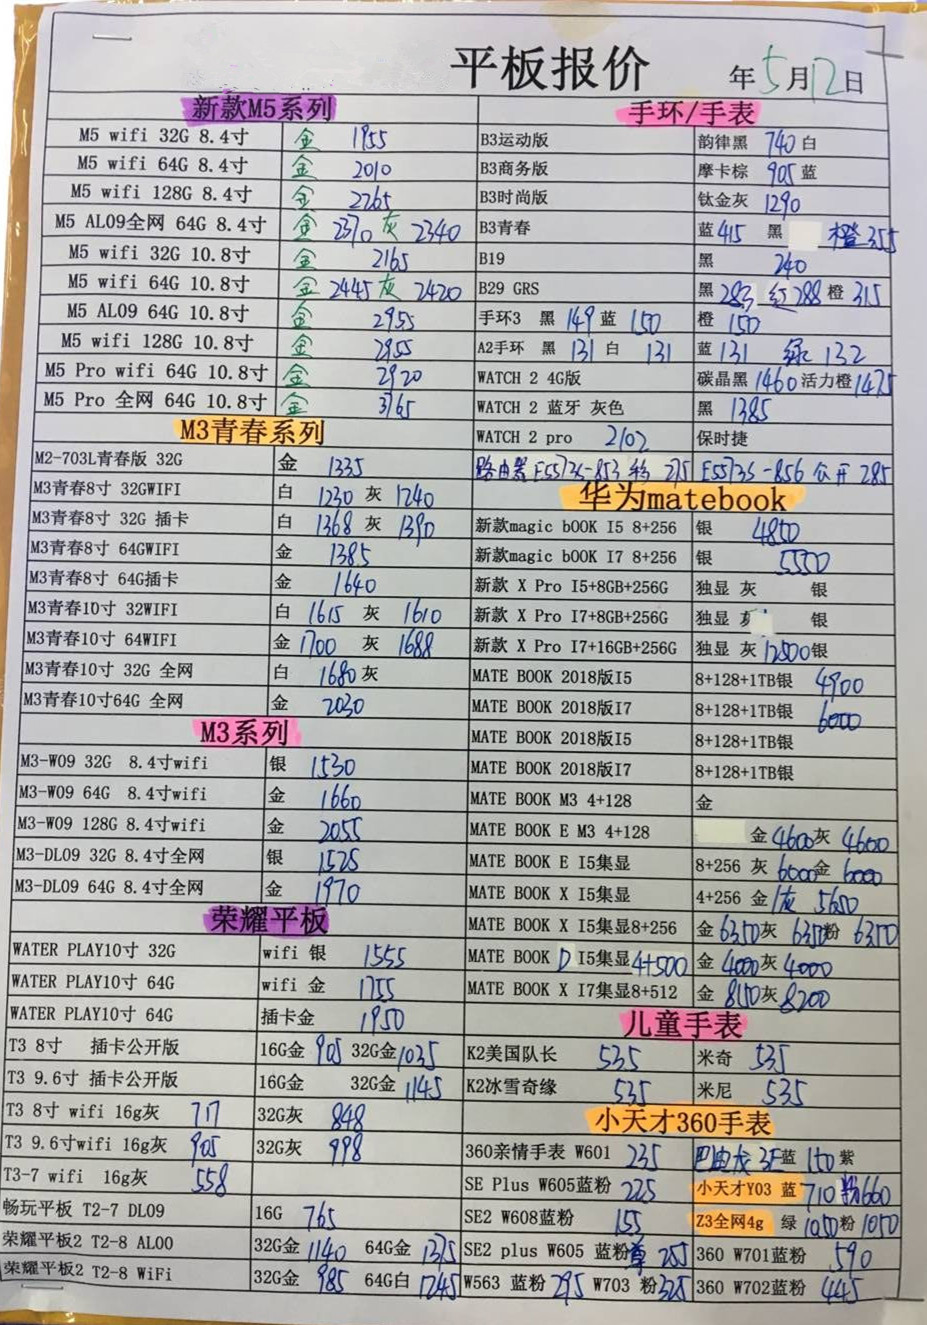 平板报价 年5月12日
新款M5系列
M5 wifi 32G 8.4寸 金 1955
M5 wifi 64G 8.4寸 金 2010
M5 wifi 128G 8.4寸 金 2265
M5 AL09全网 64G 8.4寸 金 2370 灰 2340
M5 wifi 32G 10.8寸 金 2165
M5 wifi 64G 10.8寸 金 2445 灰 2420
M5 AL09 64G 10.8寸 金 2955
M5 wifi 128G 10.8寸 金 2955
M5 Pro wifi 64G 10.8寸 金 2920
M5 Pro 全网 64G 10.8寸 金 3765
M3青春系列
M2-703L青春版 32G 金 1335
M3青春8寸 32GWIFI 白 1230 灰 1240
M3青春8寸 32G 插卡 白 1368 灰 1390
M3青春8寸 64GWIFI 金 1385
M3青春8寸 64G插卡 金 1640
M3青春10寸 32WIFI 白 1615 灰 1610
M3青春10寸 64WIFI 金 1700 灰 1688
M3青春10寸 32G 全网 白 1680 灰
M3青春10寸64G 全网 金 2030
M3系列
M3-W09 32G 8.4寸wifi 银 1530
M3-W09 64G 8.4寸wifi 金 1660
M3-W09 128G 8.4寸wifi 金 2055
M3-DL09 32G 8.4寸全网 银 1525
M3-DL09 64G 8.4寸全网 金 1970
荣耀平板
WATER PLAY10寸 32G wifi 银 1555
WATER PLAY10寸 64G wifi 金 1755
WATER PLAY10寸 64G 插卡金 1950
T3 8寸 插卡公开版 16G金 905 32G金 1035
T3 9.6寸 插卡公开版 16G金 32G金 1145
T3 8寸 wifi 16g灰 717 32G灰 848
T3 9.6寸wifi 16g灰 905 32G灰 998
T3-7 wifi 16g灰 558
畅玩平板 T2-7 DL09 16G 765
荣耀平板2 T2-8 AL00 32G金 1140 64G金 1375
荣耀平板2 T2-8 WiFi 32G金 985 64G白 1245
手环/手表
B3运动版 韵律黑 740 白
B3商务版 摩卡棕 905 蓝
B3时尚版 钛金灰 1290
B3青春 蓝 415 黑 橙 355
B19 黑 240
B29 GRS 黑 283 红 288 橙 315
手环3 黑 149 蓝 150 橙 150
A2手环 黑 131 白 131 蓝 131 绿 132
WATCH 2 4G版 碳晶黑 1460 活力橙 1475
WATCH 2 蓝牙 灰色 黑 1385
WATCH 2 pro 2102 保时捷
路由器 E5573s-853 移 275 E5573s-856 公开 285
华为matebook
新款magic bOOK I5 8+256 银 4850
新款magic bOOK I7 8+256 银 5550
新款 X Pro I5+8GB+256G 独显 灰 银
新款 X Pro I7+8GB+256G 独显 灰 银
新款 X Pro I7+16GB+256G 独显 灰 12500 银
MATE BOOK 2018版I5 8+128+1TB银 4900
MATE BOOK 2018版I7 8+128+1TB银 6000
MATE BOOK 2018版I5 8+128+1TB银
MATE BOOK 2018版I7 8+128+1TB银
MATE BOOK M3 4+128 金
MATE BOOK E M3 4+128 金 4600 灰 4600
MATE BOOK E I5集显 8+256 灰 6000 金 6000
MATE BOOK X I5集显 4+256 金/灰 5650
MATE BOOK X I5集显8+256 金 6350 灰 6350 粉 6350
MATE BOOK D I5集显 4+500 金 4000 灰 4000
MATE BOOK X I7集显8+512 金 8150 灰 8200
儿童手表
K2美国队长 535 米奇 535
K2冰雪奇缘 535 米尼 535
小天才360手表
360亲情手表 W601 235 巴迪龙 3E 蓝 150 紫
SE Plus W605蓝粉 225 小天才Y03 蓝 710 粉 660
SE2 W608蓝粉 155 Z3全网4g 绿 1050 粉 1050
SE2 plus W605 蓝粉 255 360 W701蓝粉 590
W563 蓝粉 295 W703 粉 325 360 W702蓝粉 445